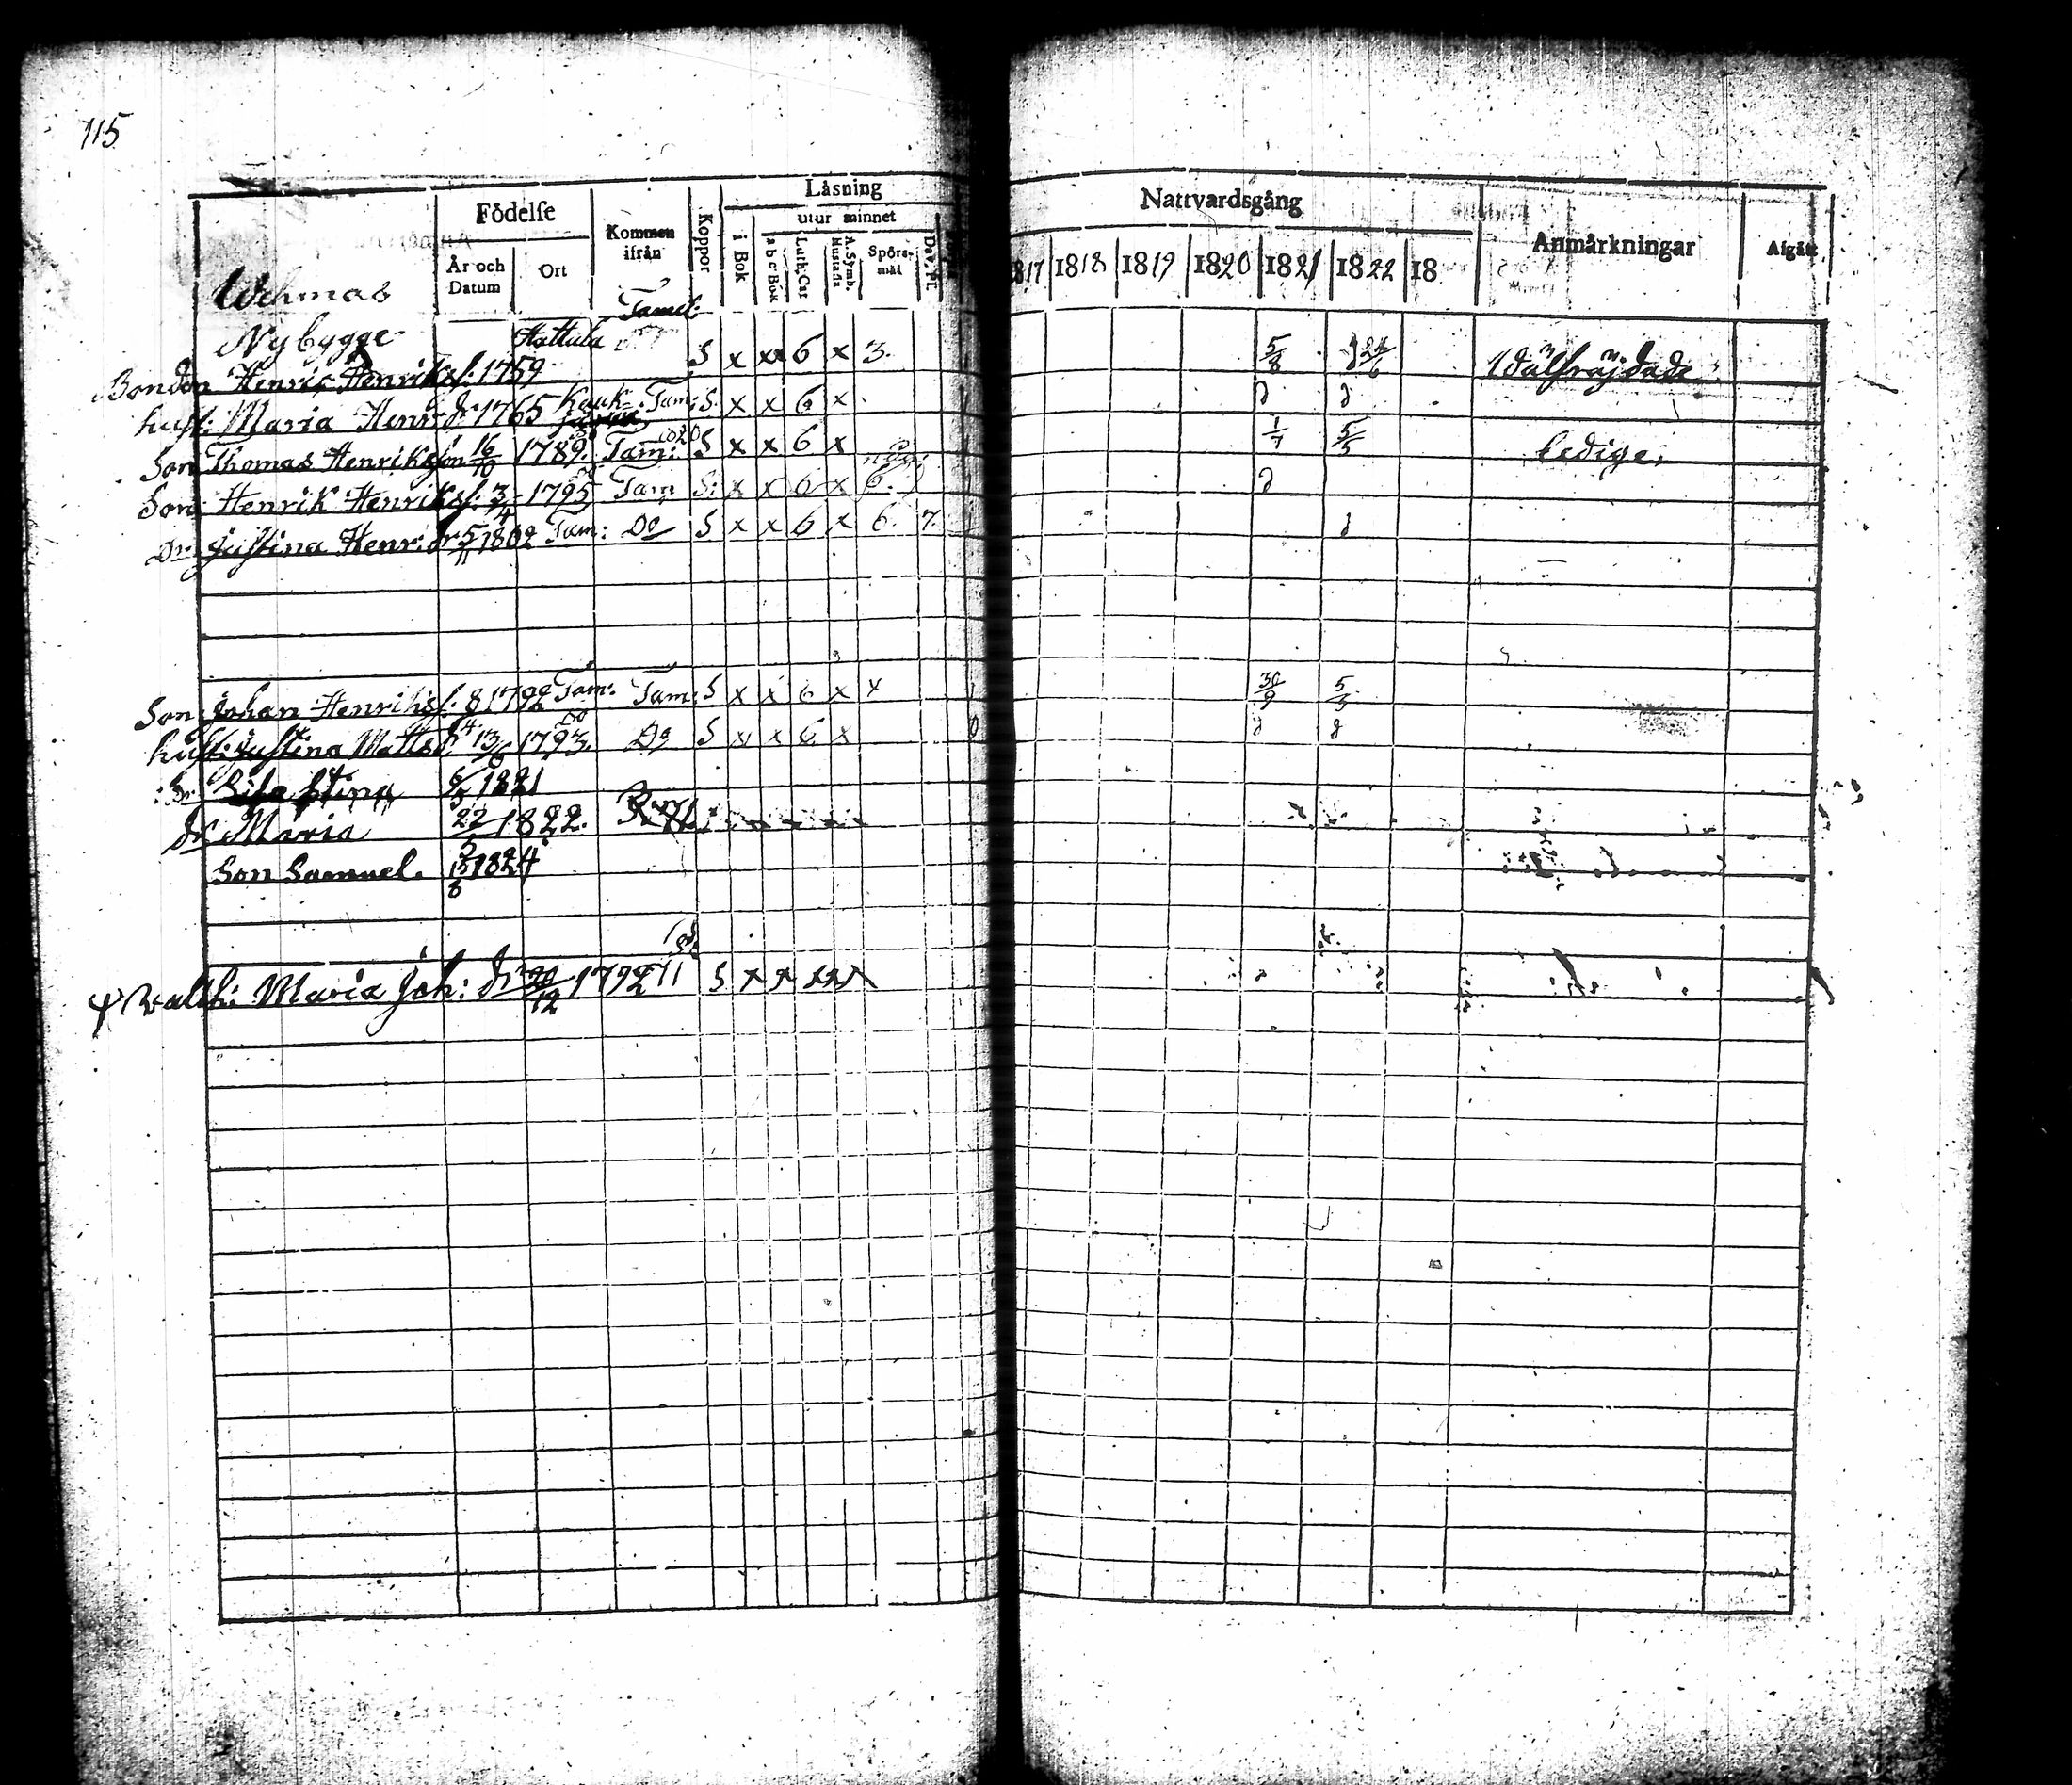 115
Födelse Kommen ifrån Koppor Läsning utur minnet i Bok a b c Bok Luth. Cat A. Symb. Hustafla Spörsmål Dav. Ps. Nattvardsgång Anmärkningar Afgått
År och Datum Ort 1817 1818 1819 1820 1821 1822 18
Wehmas
Nybygge
Bonden Henric Henriksf: 1759 Hattula Tamel: S x xx 6 x 3. 5/8 24/6
hust: Maria Henr dr 1765 Kauk Tam: S. x x 6 x
Son Thomas Henriksson 16/10 1789. Do Tam: 1820 S x x 6 x 1/7 5/5 ledige.
Son Henrik Henriksf: 3/4 1795 Do Tam S: x x 6 x 6.
Dr: Justina Henr: dr 5/11 1802 Tam: Do S x x 6 x 6. 7.
Son Johan Henriksf: 8/4 1792 Tam: Tam: S x x 6 x x 30/9 5/5
hust: Justina Matts dr 13/6 1793. Do Do S x x 6 x
Dr Lisa Stina 6/3 1821
dr Maria 22/5 1822.
Son Samuel. 15/8 1824
Maria Joh: dr 20/12 1792 S x x x x x